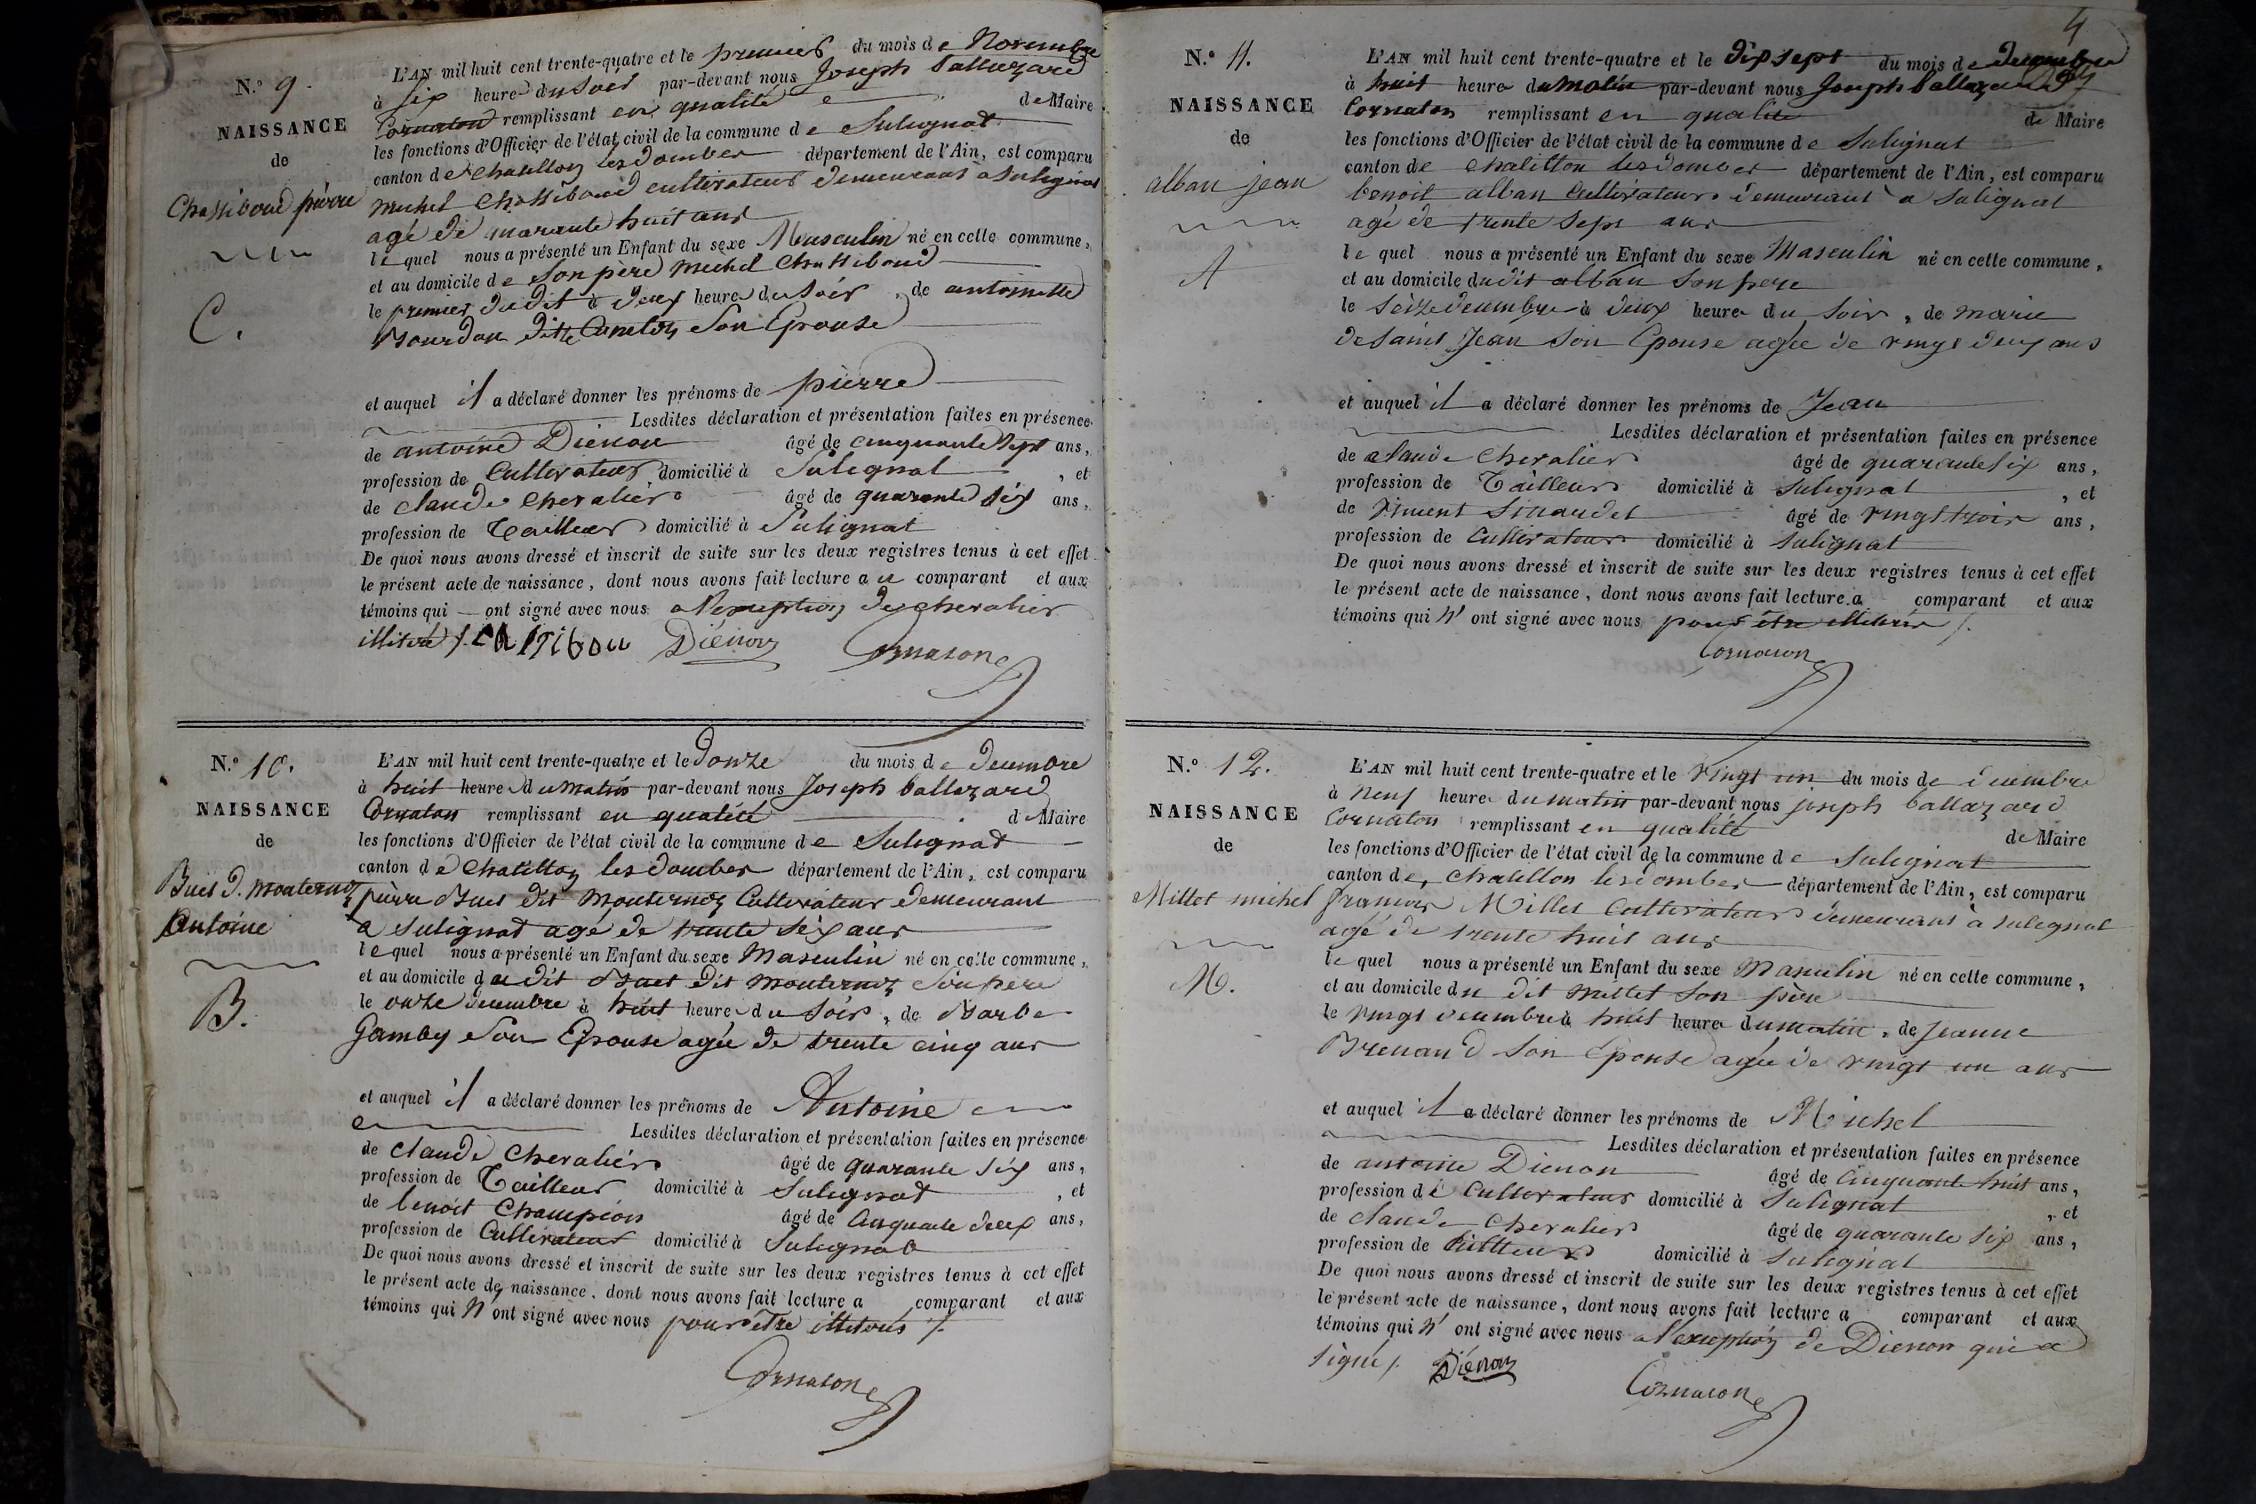 N.º 9.
NAISSANCE
de
Chassiboud pierre
C.
L'AN mil huit cent trente-quatre et le premier du mois de Novembre
à six heure du soir par-devant nous Joseph ballazard
Cornaton remplissant en qualité de Maire
les fonctions d'Officier de l'état civil de la commune de Sulignat
canton de Chatillon les dombes département de l'Ain, est comparu
michel Chassiboud cultivateur demeurant a Sulignat
agé de quarante huit ans
lequel nous a présenté un Enfant du sexe Masculin né en cette commune,
et au domicile de son père michel Chassiboud
le premier dudit à deux heure du soir, de antoinette
Bourdon ditte Caneloz son Epouse
et auquel il a déclaré donner les prénoms de pierre
Lesdites déclaration et présentation faites en présence
de antoine Diénon âgé de cinquante sept ans,
profession de Cultivateur domicilié à Sulignat, et
de claude chevalier âgé de quarante six ans,
profession de Tailleur domicilié à Sulignat
De quoi nous avons dressé et inscrit de suite sur les deux registres tenus à cet effet
le présent acte de naissance, dont nous avons fait lecture au comparant et aux
témoins qui ont signé avec nous a l'exception de chevalier
illitéré /. Diénon Cornaton
N.º 10.
NAISSANCE
de
Buet d. Monternoz
Antoine
B.
L'AN mil huit cent trente-quatre et le douze du mois de decembre
à huit heure du matin par-devant nous Joseph ballazard
Cornaton remplissant en qualité d Maire
les fonctions d'Officier de l'état civil de la commune de Sulignat
canton de Chatillon les dombes département de l'Ain, est comparu
pierre Buet dit Monternoz Cultivateur demeurant
a Sulignat agé de trente six ans
lequel nous a présenté un Enfant du sexe Masculin né en cette commune,
et au domicile du dit Buet dit Monternoz son père
le onze decembre à huit heure du soir, de Barbe
Gamby son Epouse agée de trente cinq ans
et auquel il a déclaré donner les prénoms de Antoine
Lesdites déclaration et présentation faites en présence
de claude Chevalier âgé de quarante six ans,
profession de Tailleur domicilié à Sulignat, et
de benoit Champion âgé de Cinquante deux ans,
profession de Cultivateur domicilié à Sulignat
De quoi nous avons dressé et inscrit de suite sur les deux registres tenus à cet effet
le présent acte de naissance, dont nous avons fait lecture a comparant et aux
témoins qui n'ont signé avec nous pour être illiterés /.
Cornaton
4
N.º 11.
NAISSANCE
de
alban jean
A
L'AN mil huit cent trente-quatre et le dix sept du mois de decembre
à huit heure du matin par-devant nous Joseph ballazard
Cornaton remplissant en qualité de Maire
les fonctions d'Officier de l'état civil de la commune de Sulignat
canton de chatillon les dombes département de l'Ain, est comparu
benoit alban Cultivateur demeurant à Sulignat
agé de trente sept ans
lequel nous a présenté un Enfant du sexe Masculin né en cette commune,
et au domicile dudit alban son pere
le seize decembre à deux heure du soir, de marie
de saint Jean son Epouse agée de vingt deux ans
et auquel il a déclaré donner les prénoms de Jean
Lesdites déclaration et présentation faites en présence
de claude Chevalier âgé de quarante six ans,
profession de Tailleur domicilié à Sulignat, et
de Vincent Sinaudet âgé de vingt trois ans,
profession de Cultivateur domicilié à Sulignat
De quoi nous avons dressé et inscrit de suite sur les deux registres tenus à cet effet
le présent acte de naissance, dont nous avons fait lecture a comparant et aux
témoins qui n' ont signé avec nous pour être illiterés /.
Cornaton
N.º 12.
NAISSANCE
de
Millet michel
M.
L'AN mil huit cent trente-quatre et le vingt un du mois de decembre
à neuf heure du matin par-devant nous joseph ballazard
Cornaton remplissant en qualité de Maire
les fonctions d'Officier de l'état civil de la commune de Sulignat
canton de Chatillon les dombes département de l'Ain, est comparu
francois Millet Cultivateur demeurant à Sulignat
agé de trente huit ans
lequel nous a présenté un Enfant du sexe Masculin né en cette commune,
et au domicile du dit Millet son père
le vingt decembre à huit heure du matin, de Jeanne
Brenand son Epouse agée de vingt un ans
et auquel il a déclaré donner les prénoms de Michel
Lesdites déclaration et présentation faites en présence
de antoine Dienon âgé de Cinquante huit ans,
profession de Cultivateur domicilié à Sulignat, et
de claude chevalier âgé de quarante six ans,
profession de tailleur domicilié à Sulignat
De quoi nous avons dressé et inscrit de suite sur les deux registres tenus à cet effet
le présent acte de naissance, dont nous avons fait lecture a comparant et aux
témoins qui n' ont signé avec nous a l'exception de Dienon qui a
signé /. Diénon
Cornaton